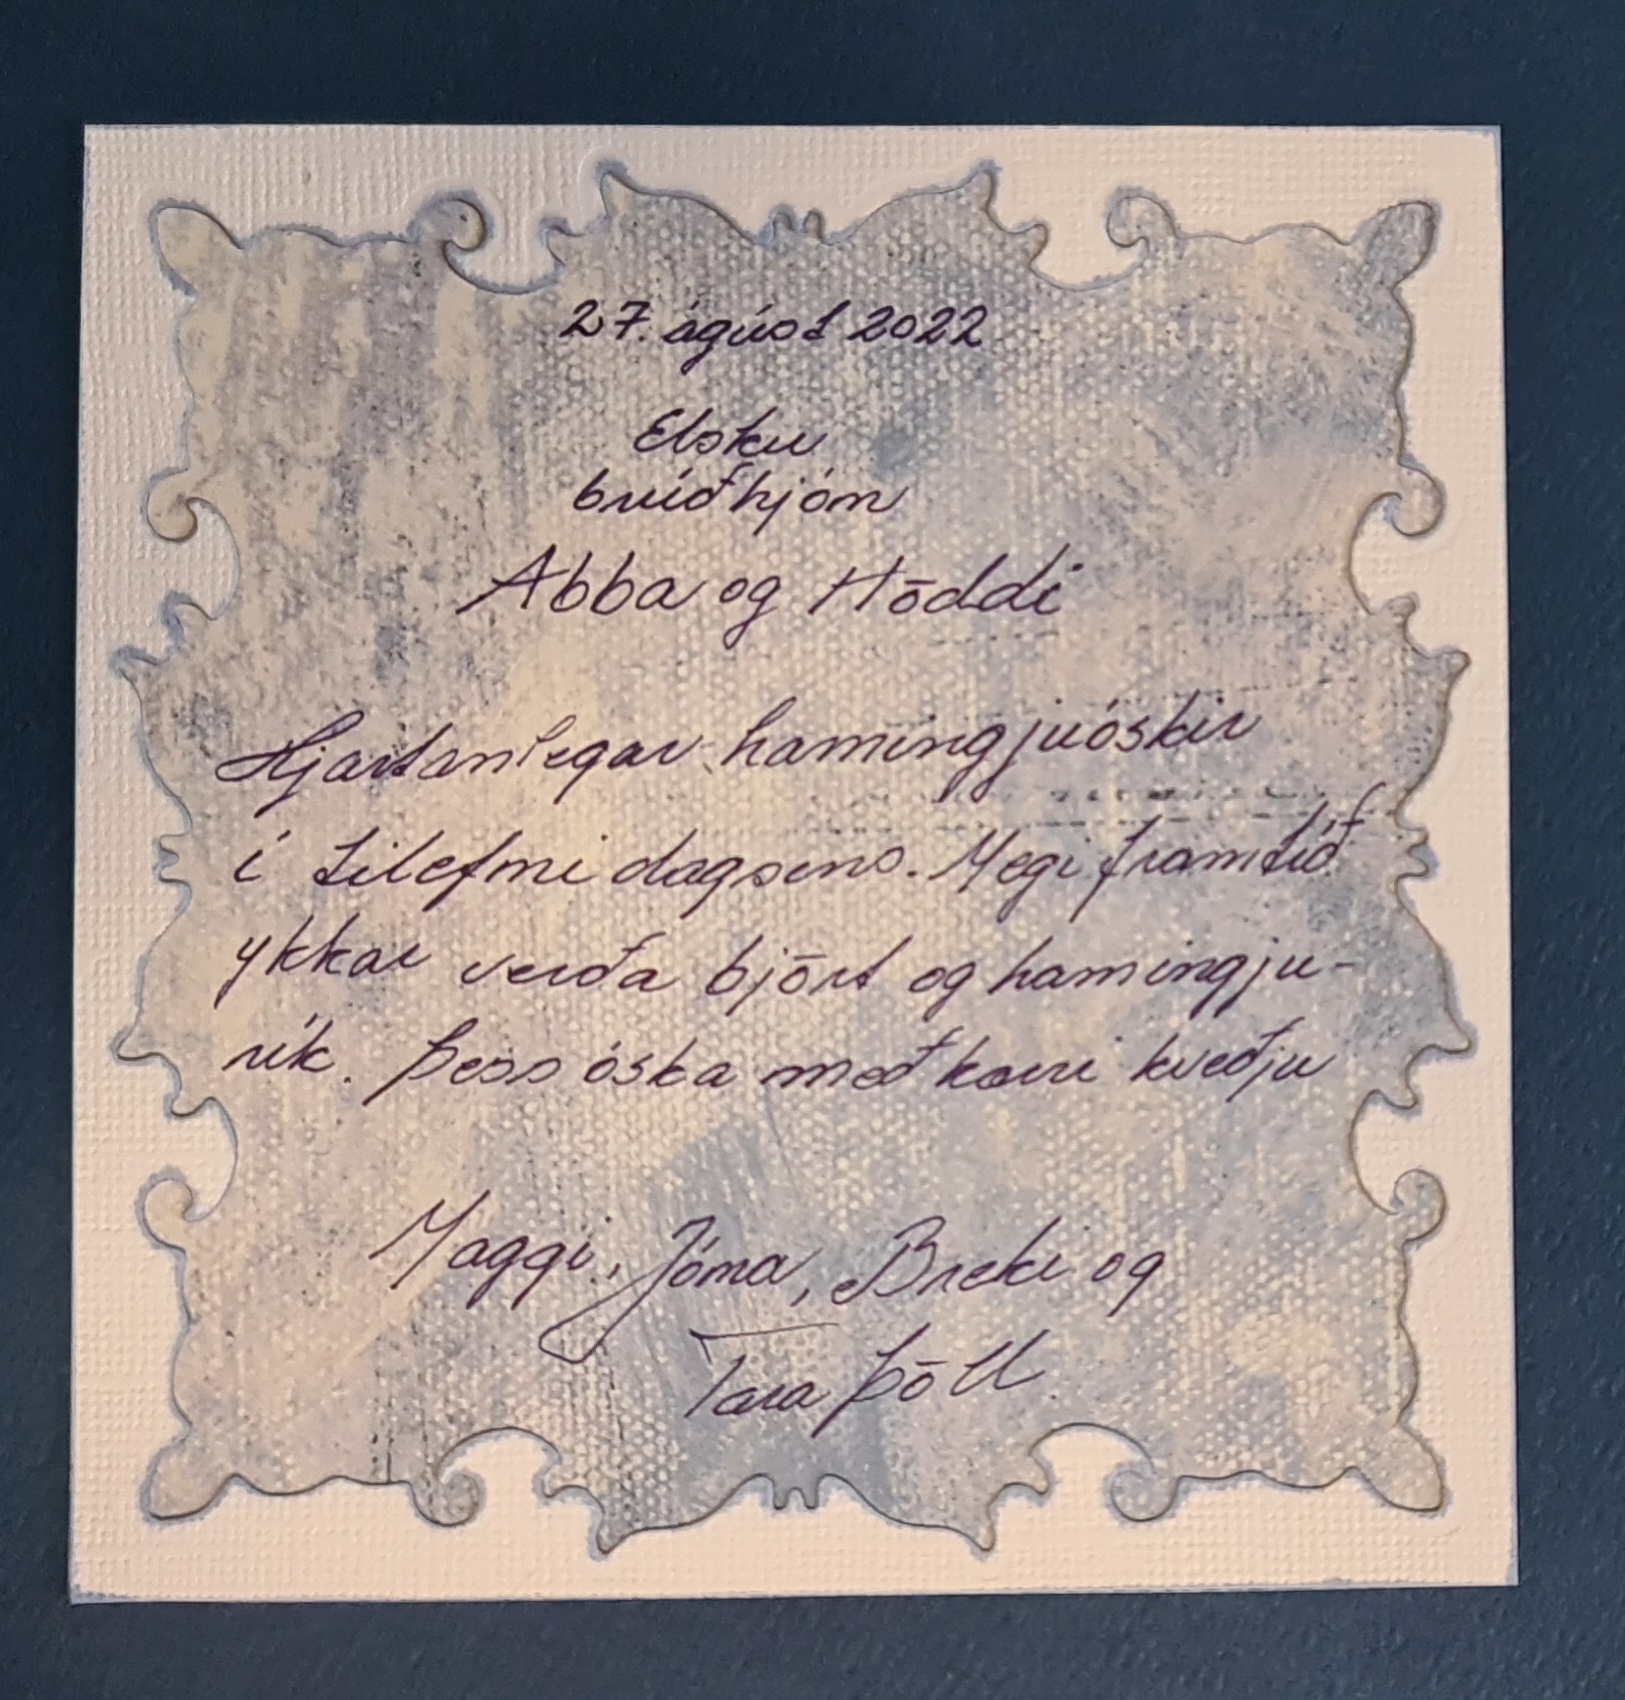 27. ágúst 2022
Elsku
brúðhjón
Abba og Höddi
Hjartanlegar hamingjuóskir
í tilefni dagsins. Megi framtíð
ykkar verða björt og hamingju-
rík. Þess óska með kærri kveðju
Maggi, Jóna, Breki og
Tara Þöll